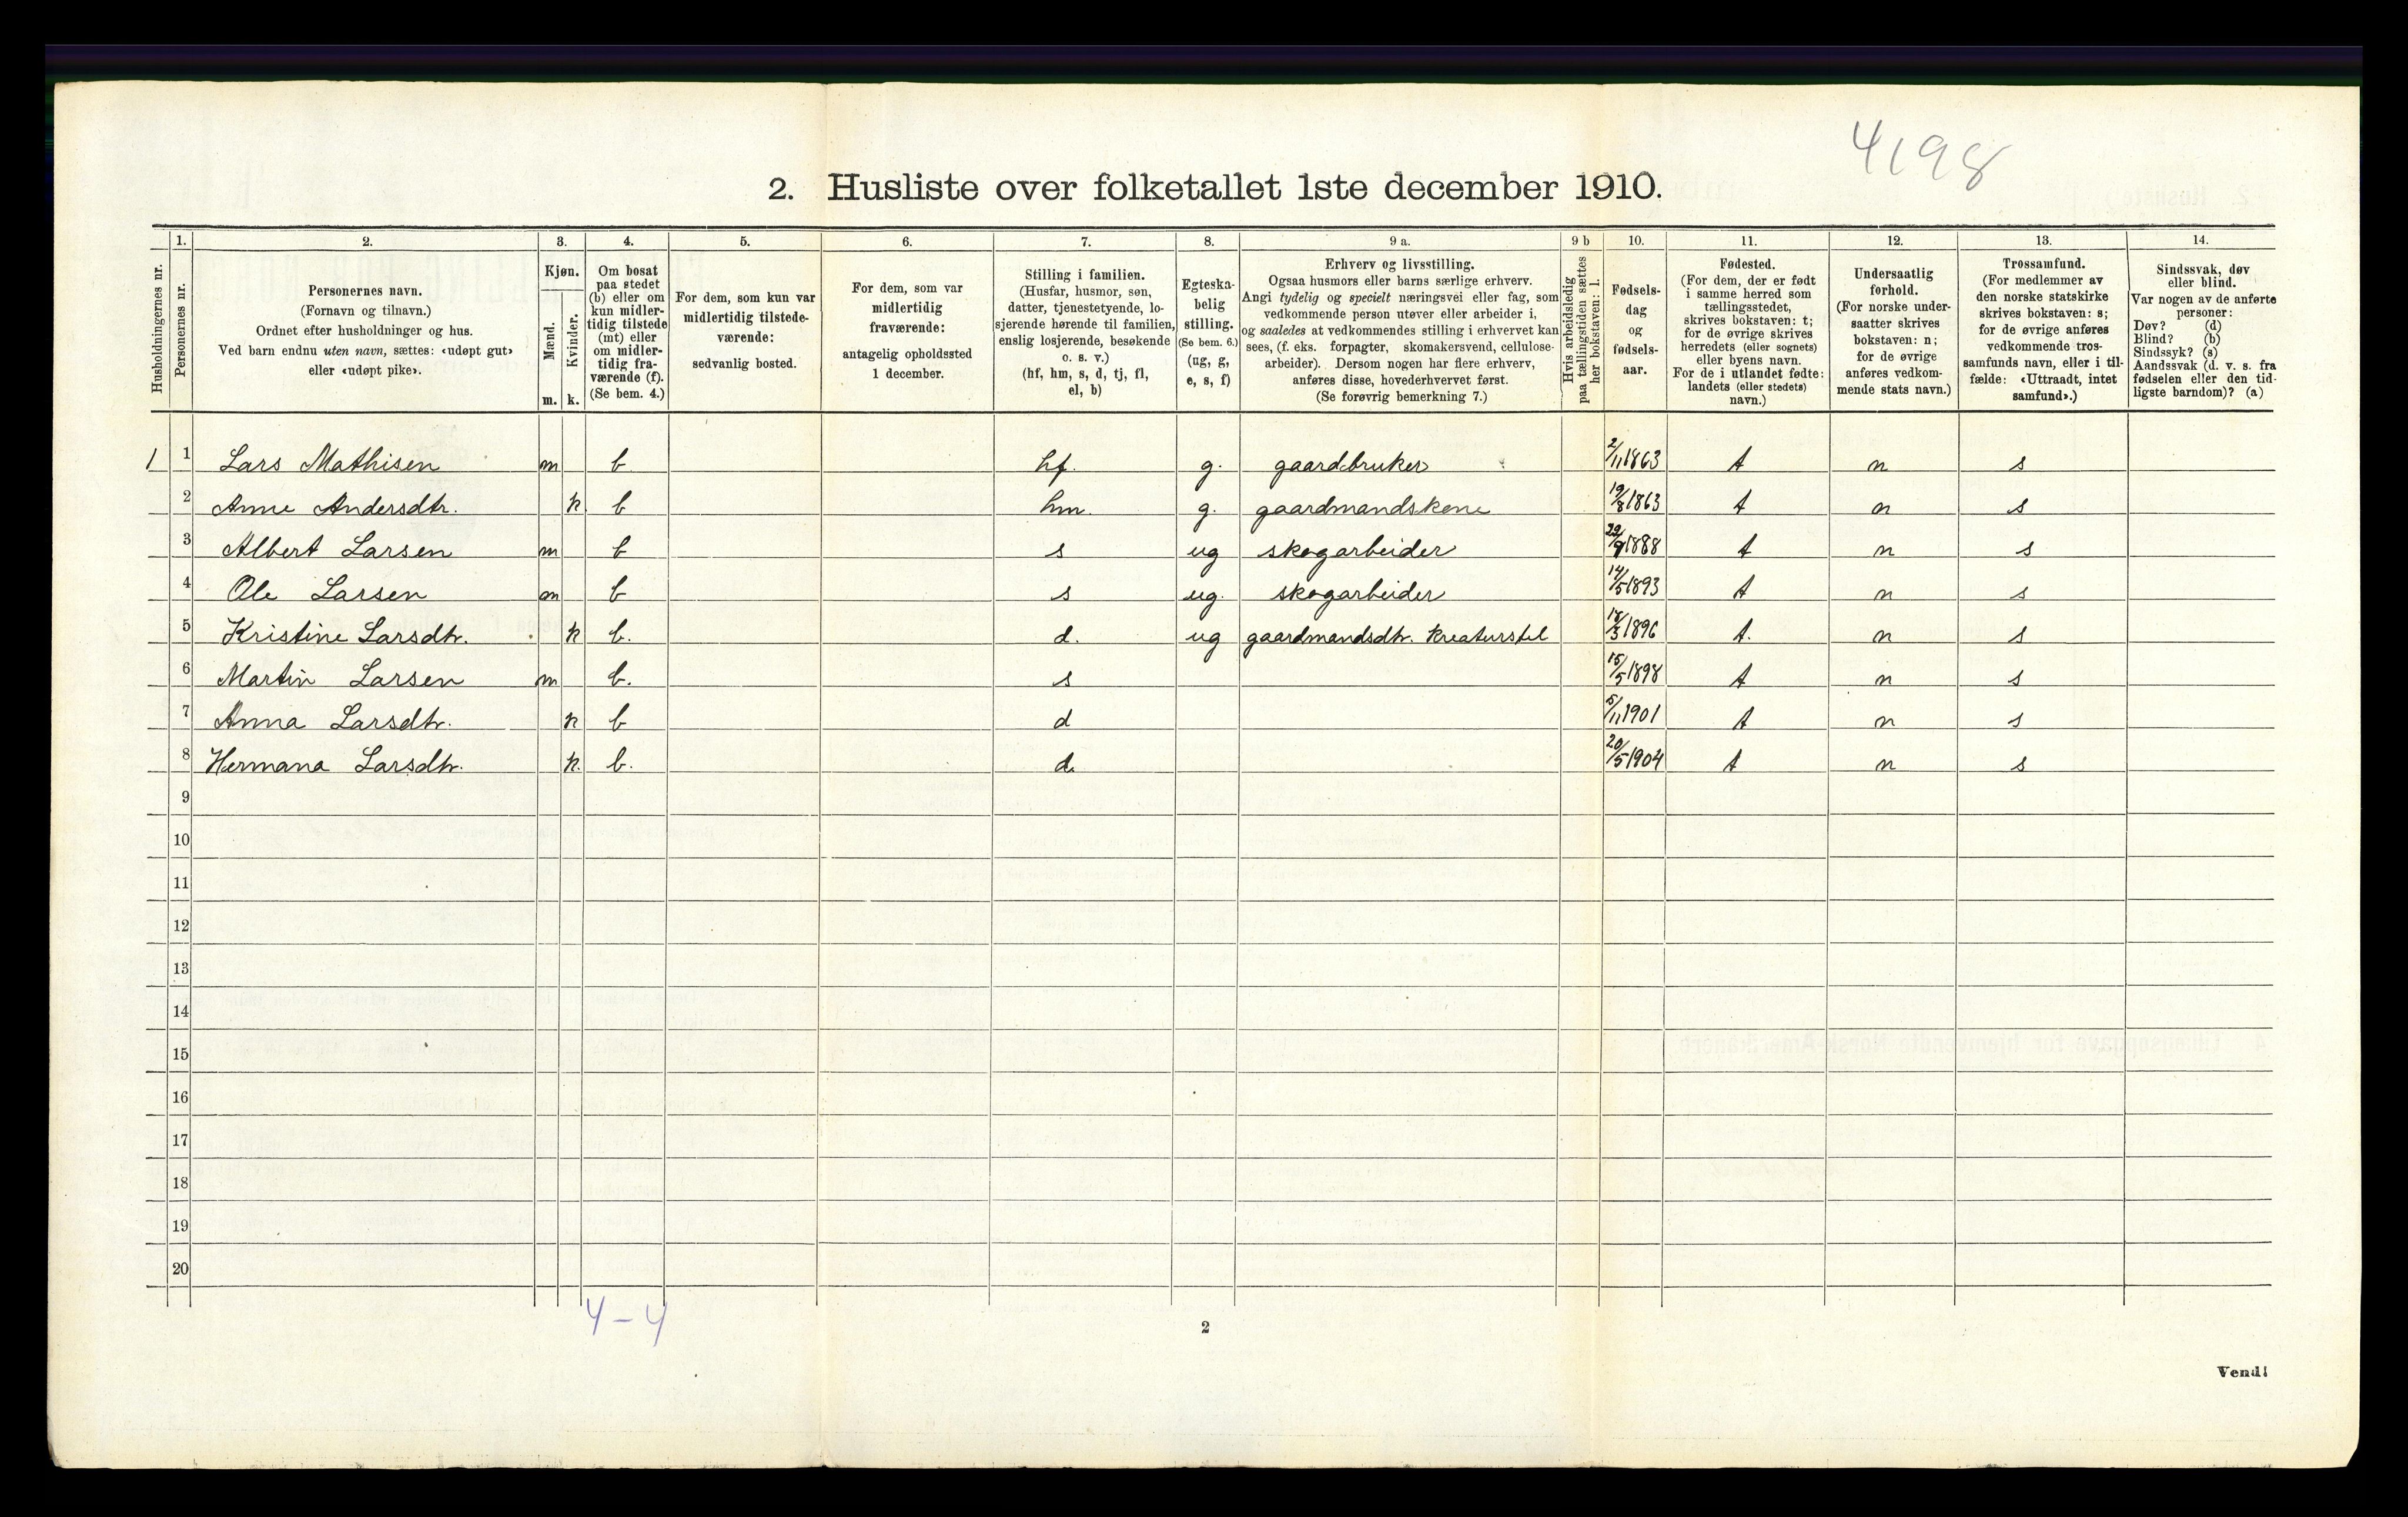 4198
2. Husliste over folketallet 1ste december 1910.
Husholdningernes nr.
1. Personernes nr.
2. Personernes navn. (Fornavn og tilnavn.) Ordnet efter husholdninger og hus. Ved barn endnu uten navn, sættes: «udøpt gut» eller «udøpt pike».
3. Kjøn. Mænd. m. Kvinder. k.
4. Om bosat paa stedet (b) eller om kun midlertidig tilstede (mt) eller om midlertidig fraværende (f). (Se bem. 4.)
5. For dem, som kun var midlertidig tilstedeværende: sedvanlig bosted.
6. For dem, som var midlertidig fraværende: antagelig opholdssted 1 december.
7. Stilling i familien. (Husfar, husmor, søn, datter, tjenestetyende, losjerende hørende til familien, enslig losjerende, besøkende o. s. v.) (hf, hm, s, d, tj, fl, el, b)
8. Egteskabelig stilling. (Se bem. 6.) (ug, g, e, s, f)
9 a. Erhverv og livsstilling. Ogsaa husmors eller barns særlige erhverv. Angi tydelig og specielt næringsvei eller fag, som vedkommende person utøver eller arbeider i, og saaledes at vedkommendes stilling i erhvervet kan sees, (f. eks. forpagter, skomakersvend, cellulosearbeider). Dersom nogen har flere erhverv, anføres disse, hovederhvervet først. (Se forøvrig bemerkning 7.)
9 b Hvis arbeidsledig paa tællingstiden sættes her bokstaven: l.
10. Fødselsdag og fødselsaar.
11. Fødested. (For dem, der er født i samme herred som tællingsstedet, skrives bokstaven: t; for de øvrige skrives herredets (eller sognets) eller byens navn. For de i utlandet fødte: landets (eller stedets) navn.)
12. Undersaatlig forhold. (For norske undersaatter skrives bokstaven: n; for de øvrige anføres vedkommende stats navn.)
13. Trossamfund. (For medlemmer av den norske statskirke skrives bokstaven: s; for de øvrige anføres vedkommende trossamfunds navn, eller i tilfælde: «Uttraadt, intet samfund».)
14. Sindssvak, døv eller blind. Var nogen av de anførte personer: Døv? (d) Blind? (b) Sindssyk? (s) Aandssvak (d. v. s. fra fødselen eller den tidligste barndom)? (a)
1 1 Lars Mathisen m b hf. g. gaardbruker 2/11 1863 t n s
2 Anne Andersdtr. k. b hm. g. gaardmandskone 19/8 1863 t n s
3 Albert Larsen m b s ug skogarbeider 22/9 1888 t n s
4 Ole Larsen m b s ug. skogarbeider 14/5 1893 t n s
5 Kristine Larsdtr. k b. d. ug gaardmandsdtr. kreaturstel 18/3 1896 t. n s
6 Martin Larsen m b. s 15/5 1898 t n s
7 Anna Larsdtr. k b d 5/11 1901 t n s
8 Hermana Larsdtr. k. b. d. 20/5 1904 t n s
9
10
11
12
13
14
15
16
17
18
19
20
4–4
2
Vend!